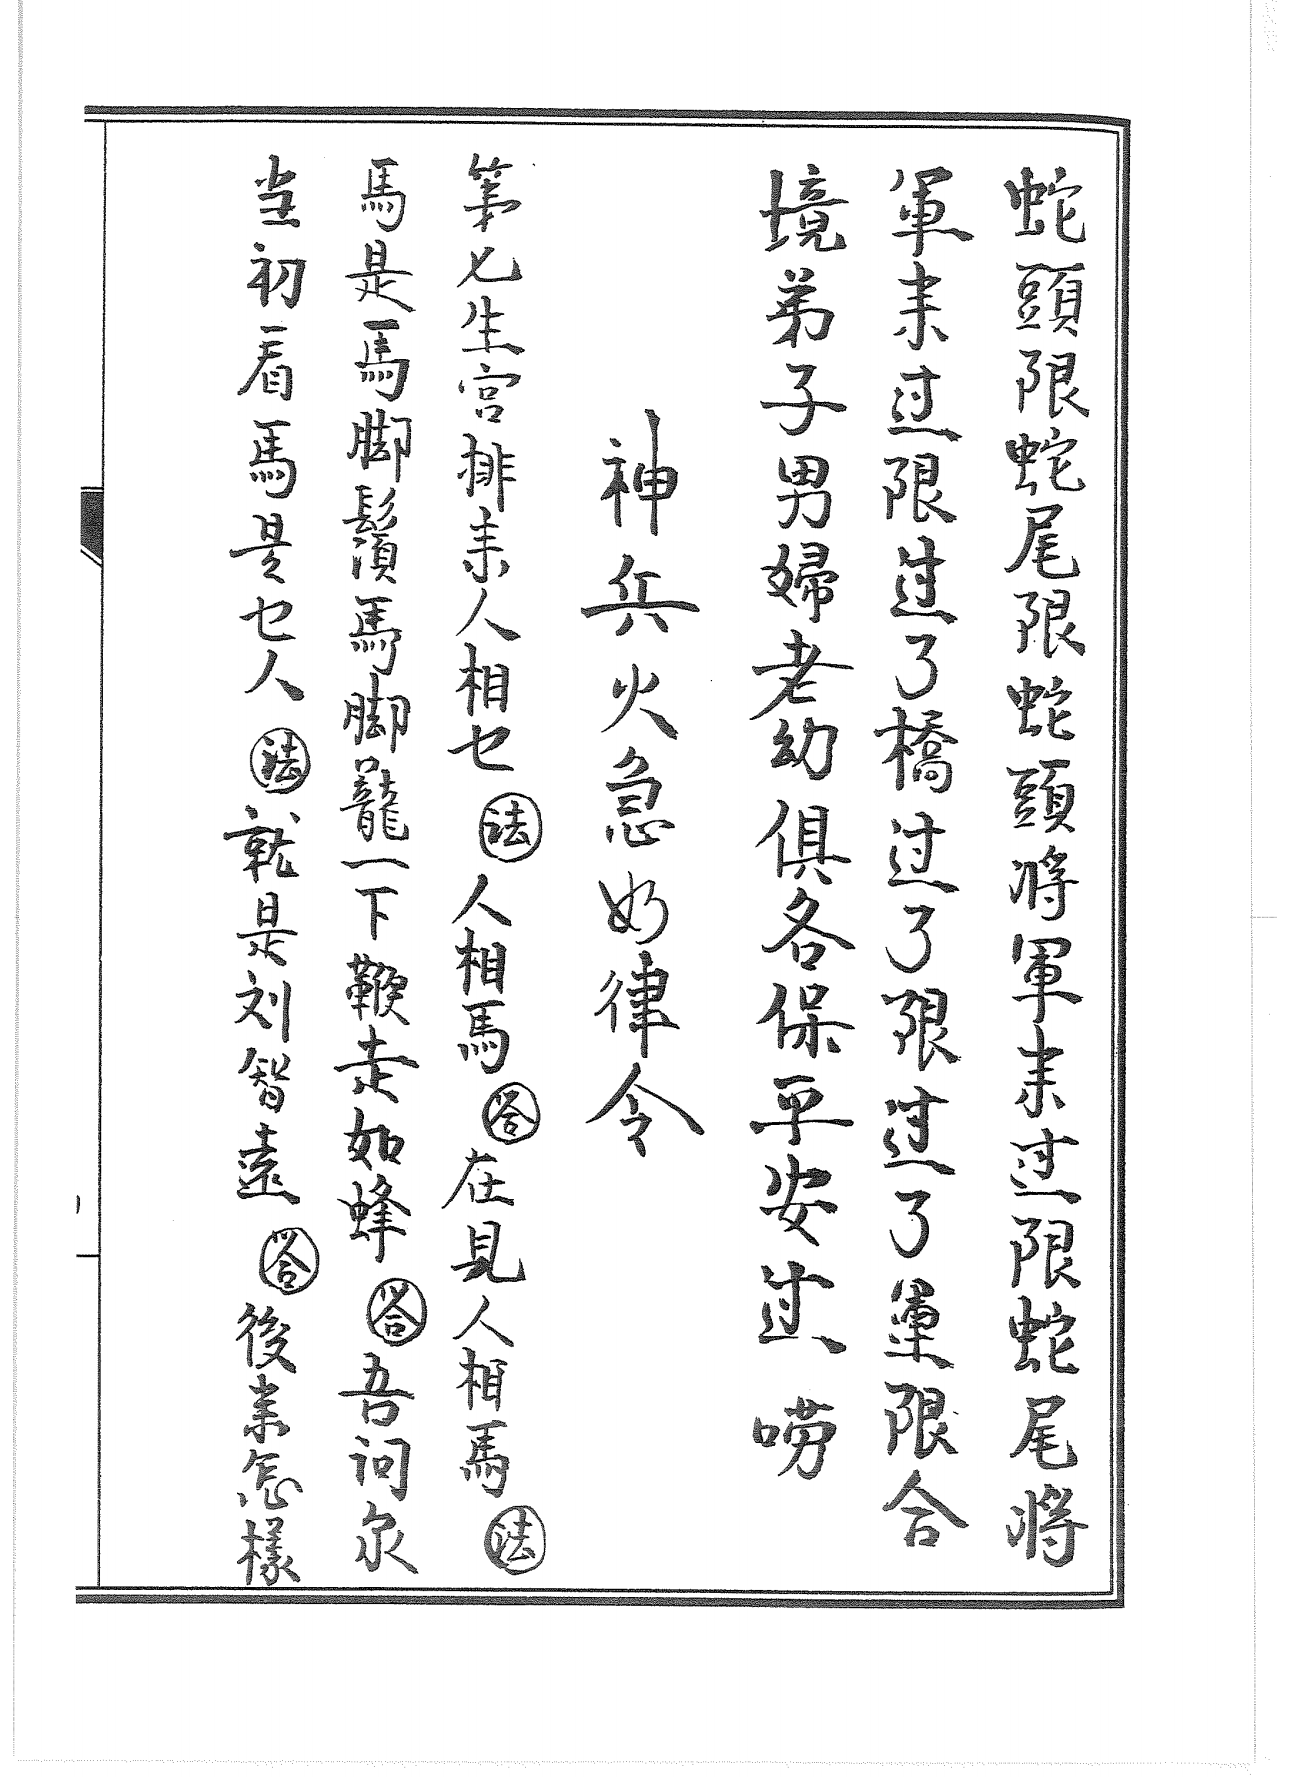 蛇頭限蛇尾限蛇頭將軍来过限蛇尾將
軍来过限过了橋过了限过了運限合
境弟子男婦老幼俱各保平安过 嘮
神兵火急如律令
第七生宮排来人相乜 法 人相馬 答 在見人相馬 法
馬是馬脚鬚馬脚龍一下鞭走如蜂 答 吾问尔
当初看馬是乜人 法 就是刘智遠 答 後来怎樣